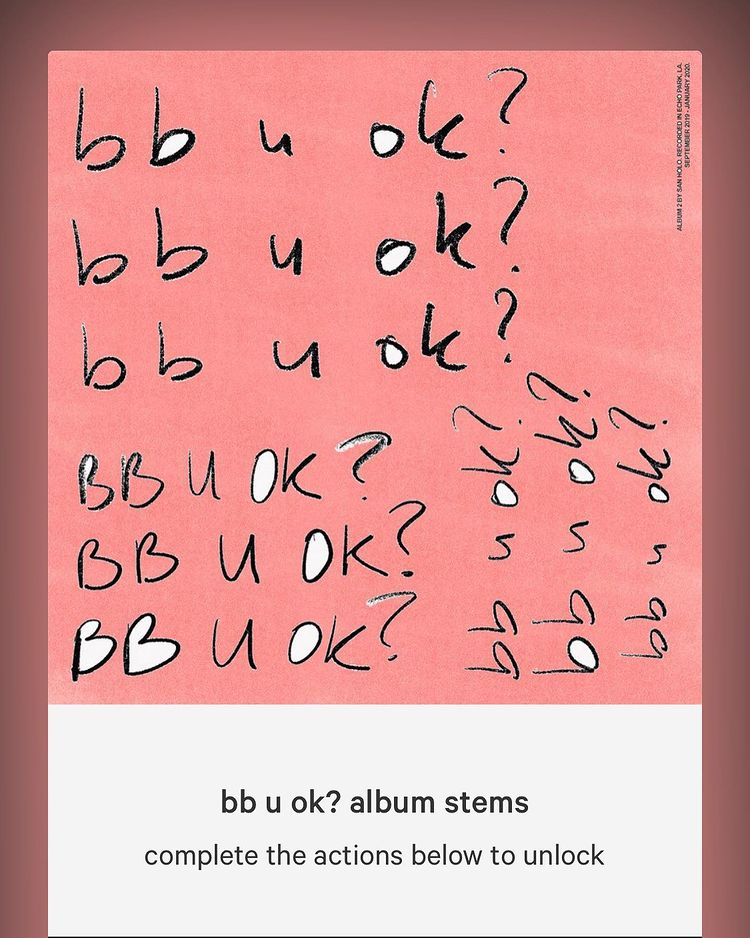 bb u ok?
bb u ok?
bb u ok?
BB U OK?
BB U OK?
BB U OK?
bb u ok?
bb u ok?
bb u ok?
ALBUM 2 BY SAN HOLO. RECORDED IN ECHO PARK, LA.
SEPTEMBER 2019 - JANUARY 2020.
bb u ok? album stems
complete the actions below to unlock